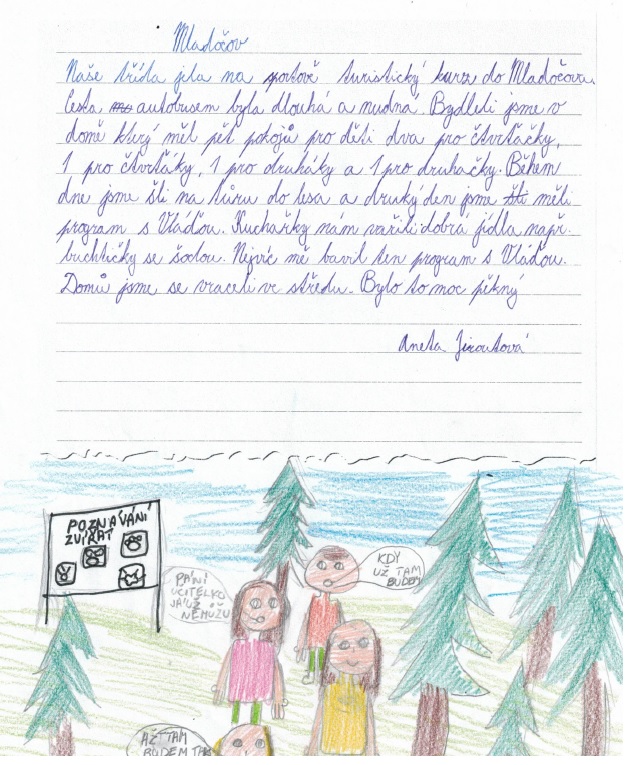 Mladočov
Naše třída jela na sportově turistický kurz do Mladočova.
Cesta autobusem byla dlouhá a nudná. Bydleli jsme v
domě který měl pět pokojů pro děti dva pro čtvrťačky,
1 pro čtvrťáky, 1 pro druháky a 1 pro druhačky. Během
dne jsme šli na túru do lesa a druhý den jsme šli měli
program s Vláďou. Kuchařky nám vařili dobrá jídla např.
buchtičky se šodou. Nejvíc mě bavil ten program s Vláďou.
Domů jsme se vraceli ve středu. Bylo to moc pěkný
Aneta Jiroutová
POZNÁVÁNÍ
ZVÍŘAT
PANÍ
UČITELKO
JÁ UŽ
NEMŮŽU
KDY
UŽ TAM
BUDEM
AŽ TAM
BUDEM TAM